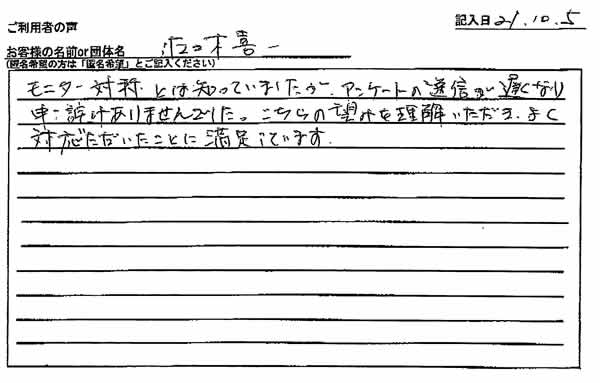 ご利用者の声
記入日 21.10.5
お客様の名前or団体名
(匿名希望の方は「匿名希望」とご記入ください)
モニター対称とは知っていましたが、アンケートの送信が遅くなり
申し訳ありませんでした。こちらの望みを理解いただき、よく
対応ただいたことに満足しています。